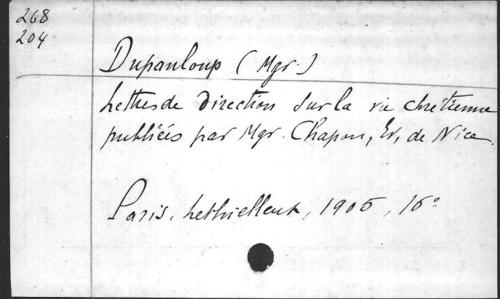 268
204
Dupanloup (Mgr.)
Lettres de direction sur la vie chrétienne
publiées par Mgr. Chapon, Ev. de Nice.
Paris, Lethielleux, 1905, 16°